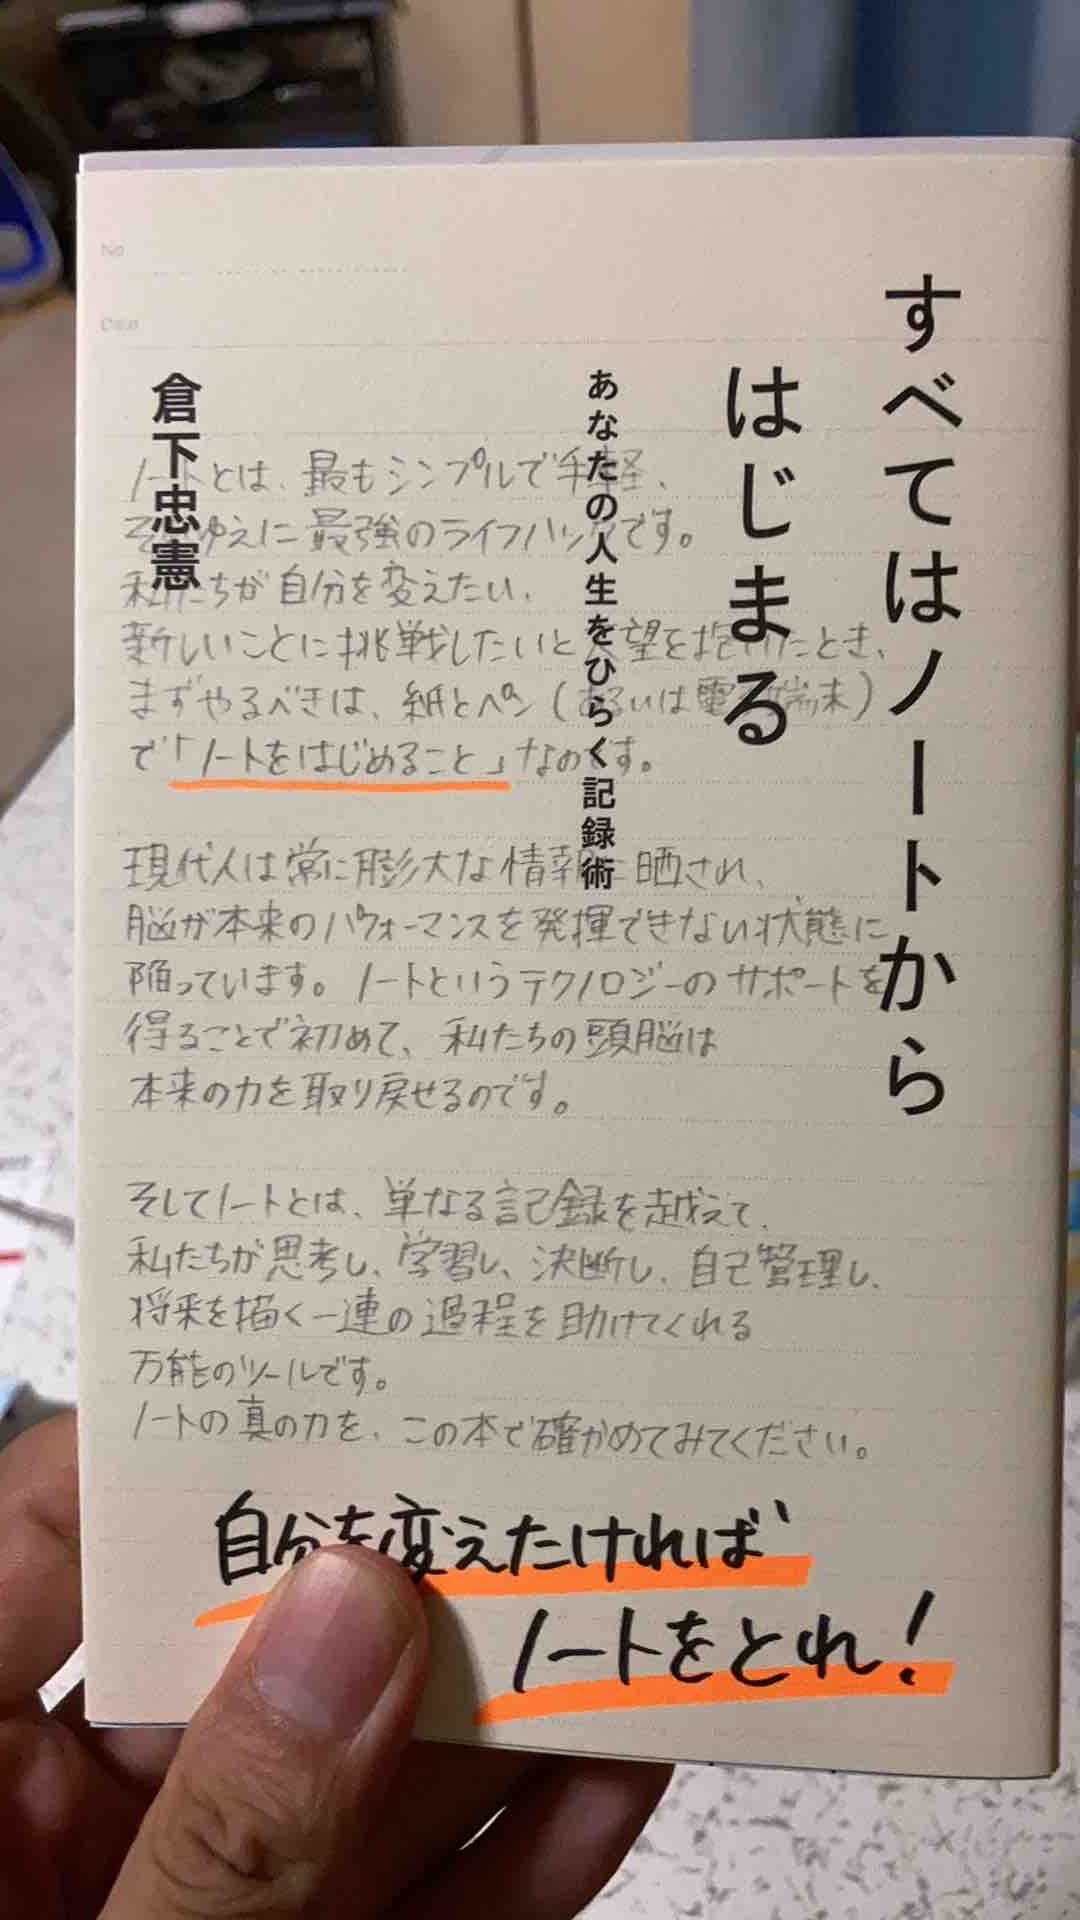 すべてはノートから
はじまる
あなたの人生をひらく記録術
倉下忠憲
No
ノートとは、最もシンプルで手軽、
そ ゆえに最強のライフハックです。
私たちが自分を変えたい、
新しいことに挑戦したいと 望を抱いたとき、
まずやるべきは、紙とペン(あるいは電 端末)
で「ノートをはじめること」なのです。
現代人は常に膨大な情報に晒され、
脳が本来のパフォーマンスを発揮できない状態に
陥っています。ノートというテクノロジーのサポートを
得ることで初めて、私たちの頭脳は
本来の力を取り戻せるのです。
そしてノートとは、単なる記録を越えて、
私たちが思考し、学習し、決断し、自己管理し、
将来を描く一連の過程を助けてくれる
万能のツールです。
ノートの真の力を、この本で確かめてみてください。
自分を変えたければ、
ノートをとれ!